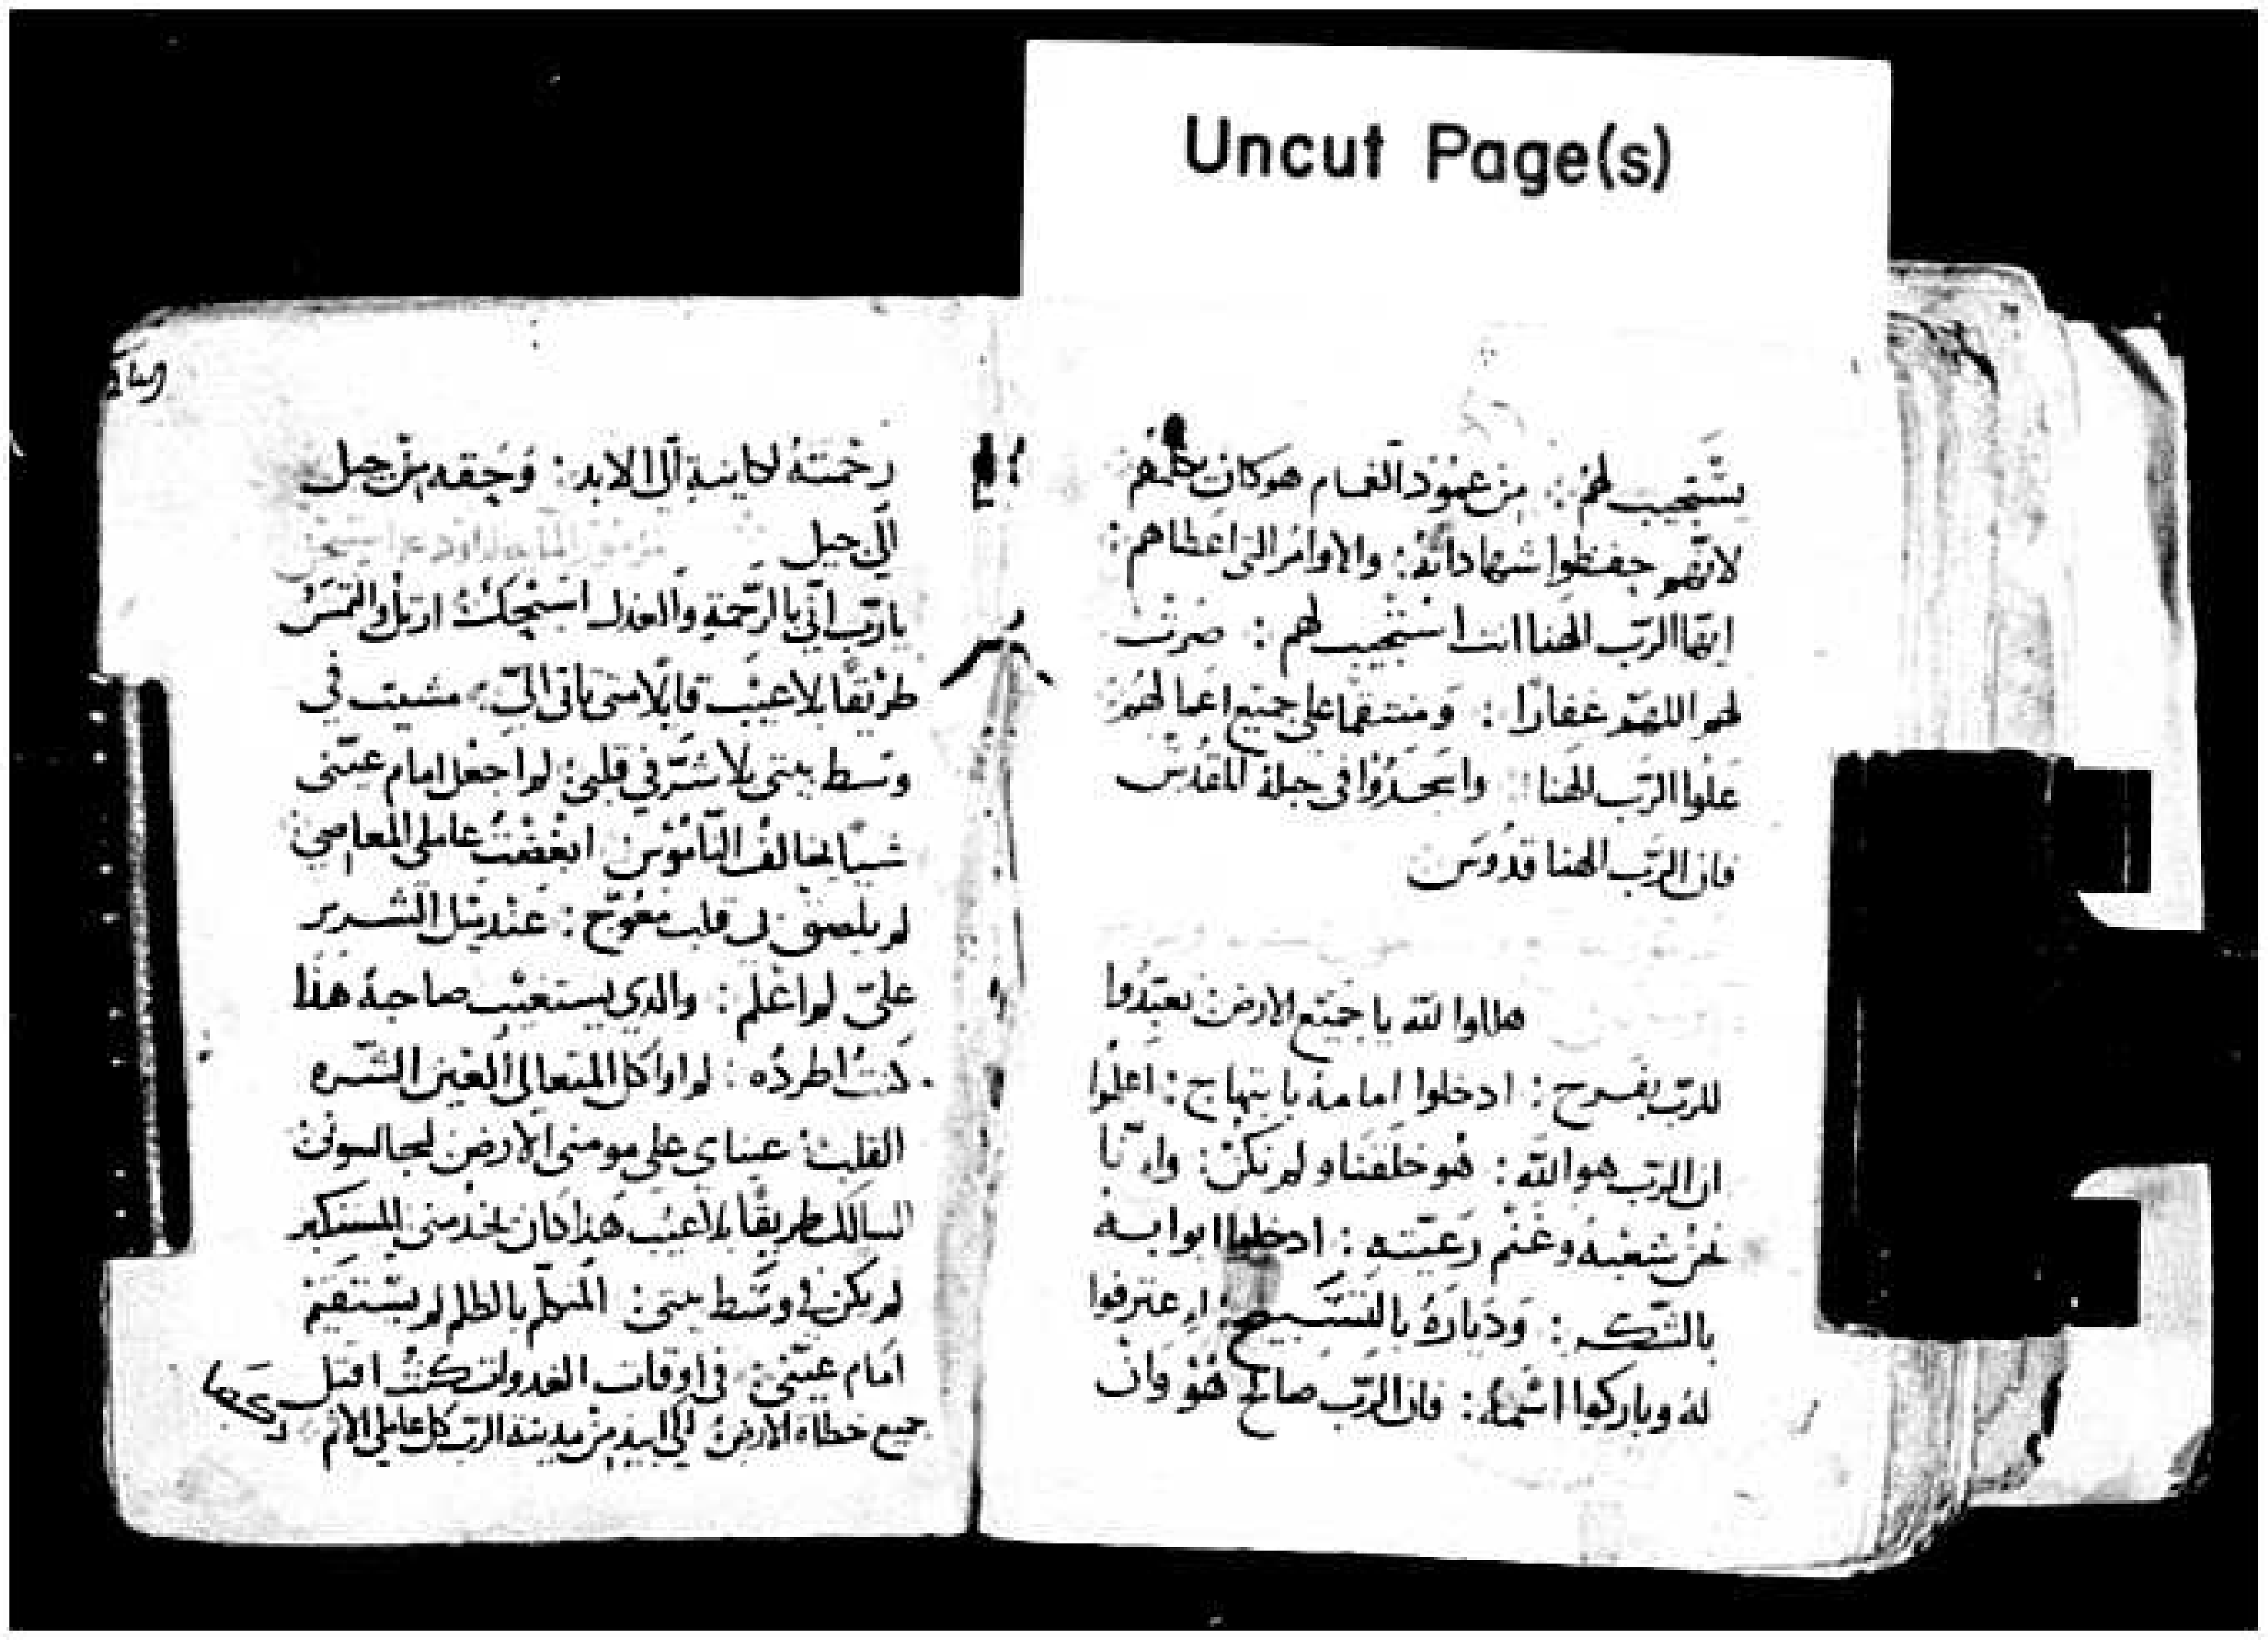 Uncut Page(s)
يستجيب لهم : من عمود الغمام هو كان يكلمهم
لانهم حفظوا شهاداته : والاوامر التى اعطاهم :
ايها الرب الهنا انت استجيب لهم : صرت
لهم اللهم غفارا : ومنتقما على جميع اعمالهم
علوا الرب الهنا : واسجدوا فى جبله المقدس
فان الرب الهنا قدوس
هللوا لله يا جميع الارض تعبدوا
للرب بفرح : ادخلوا امامه بابتهاج : اعلموا
ان الرب هو الله : هو خلقنا ولم نكن : واننا
نحن شعبه وغنم رعيته : ادخلوا ابوابه
بالشكر : ودياره بالتسبيح : اعترفوا
له وباركوا اسمه : فان الرب صالح هو وان
رحمته لكاينة الى الابد : وحقه من جيل
الى جيل
يا رب انى بالرحمة والعدل اسبحك ارتل والتمس
طريقا بلا عيب قايلا متى تاتى الي : مشيت في
وسط بيتى بلا شر في قلبى : لم اجعل امام عينى
شيا يخالف الناموس ابغضت عاملى المعاصي
لم يلصق بى قلب معوج : عند ميل الشرير
علىّ لم اعلم : والذي يستغيب صاحبه هذا
كنت اطرده : لم اواكل المتعالى العين الشره
القلب : عيناى على مومنى الارض ليجالسونى
السالك طريقا بلا عيب هذا كان يخدمنى المستكبر
لم يكن فى وسط بيتى : المتكلم بالظلم لم يستقيم
امام عينى : فى اوقات الغدوات كنت اقتل
جميع خطاة الارض : لكى ابيد من مدينة الرب كل عاملى الاثم